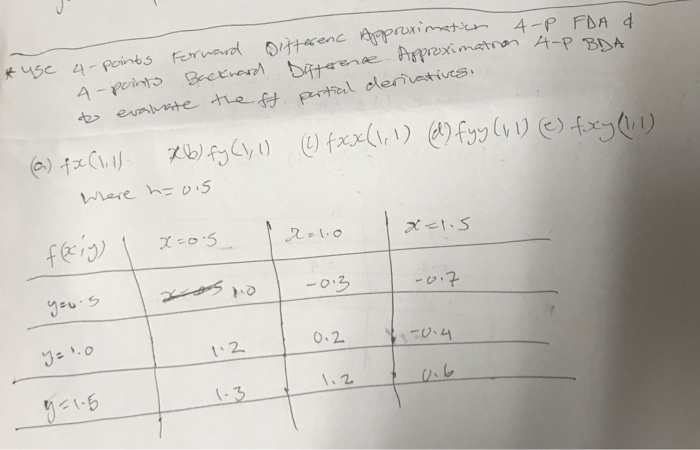 * use 4-points Forward Differenc Approximation 4-P FDA &
4-points Backward Difference Approximation 4-P BDA
to evaluate the ff partial derivatives.
(a) fx(1,1) x(b) fy(1,1) (c) fxx(1,1) (d) fyy(1,1) (e) fxy(1,1)
where h=0.5
f(x,y) x=0.5 x=1.0 x=1.5
y=0.5 1.0 -0.3 -0.7
y=1.0 1.2 0.2 -0.4
y=1.5 1.3 1.2 0.6